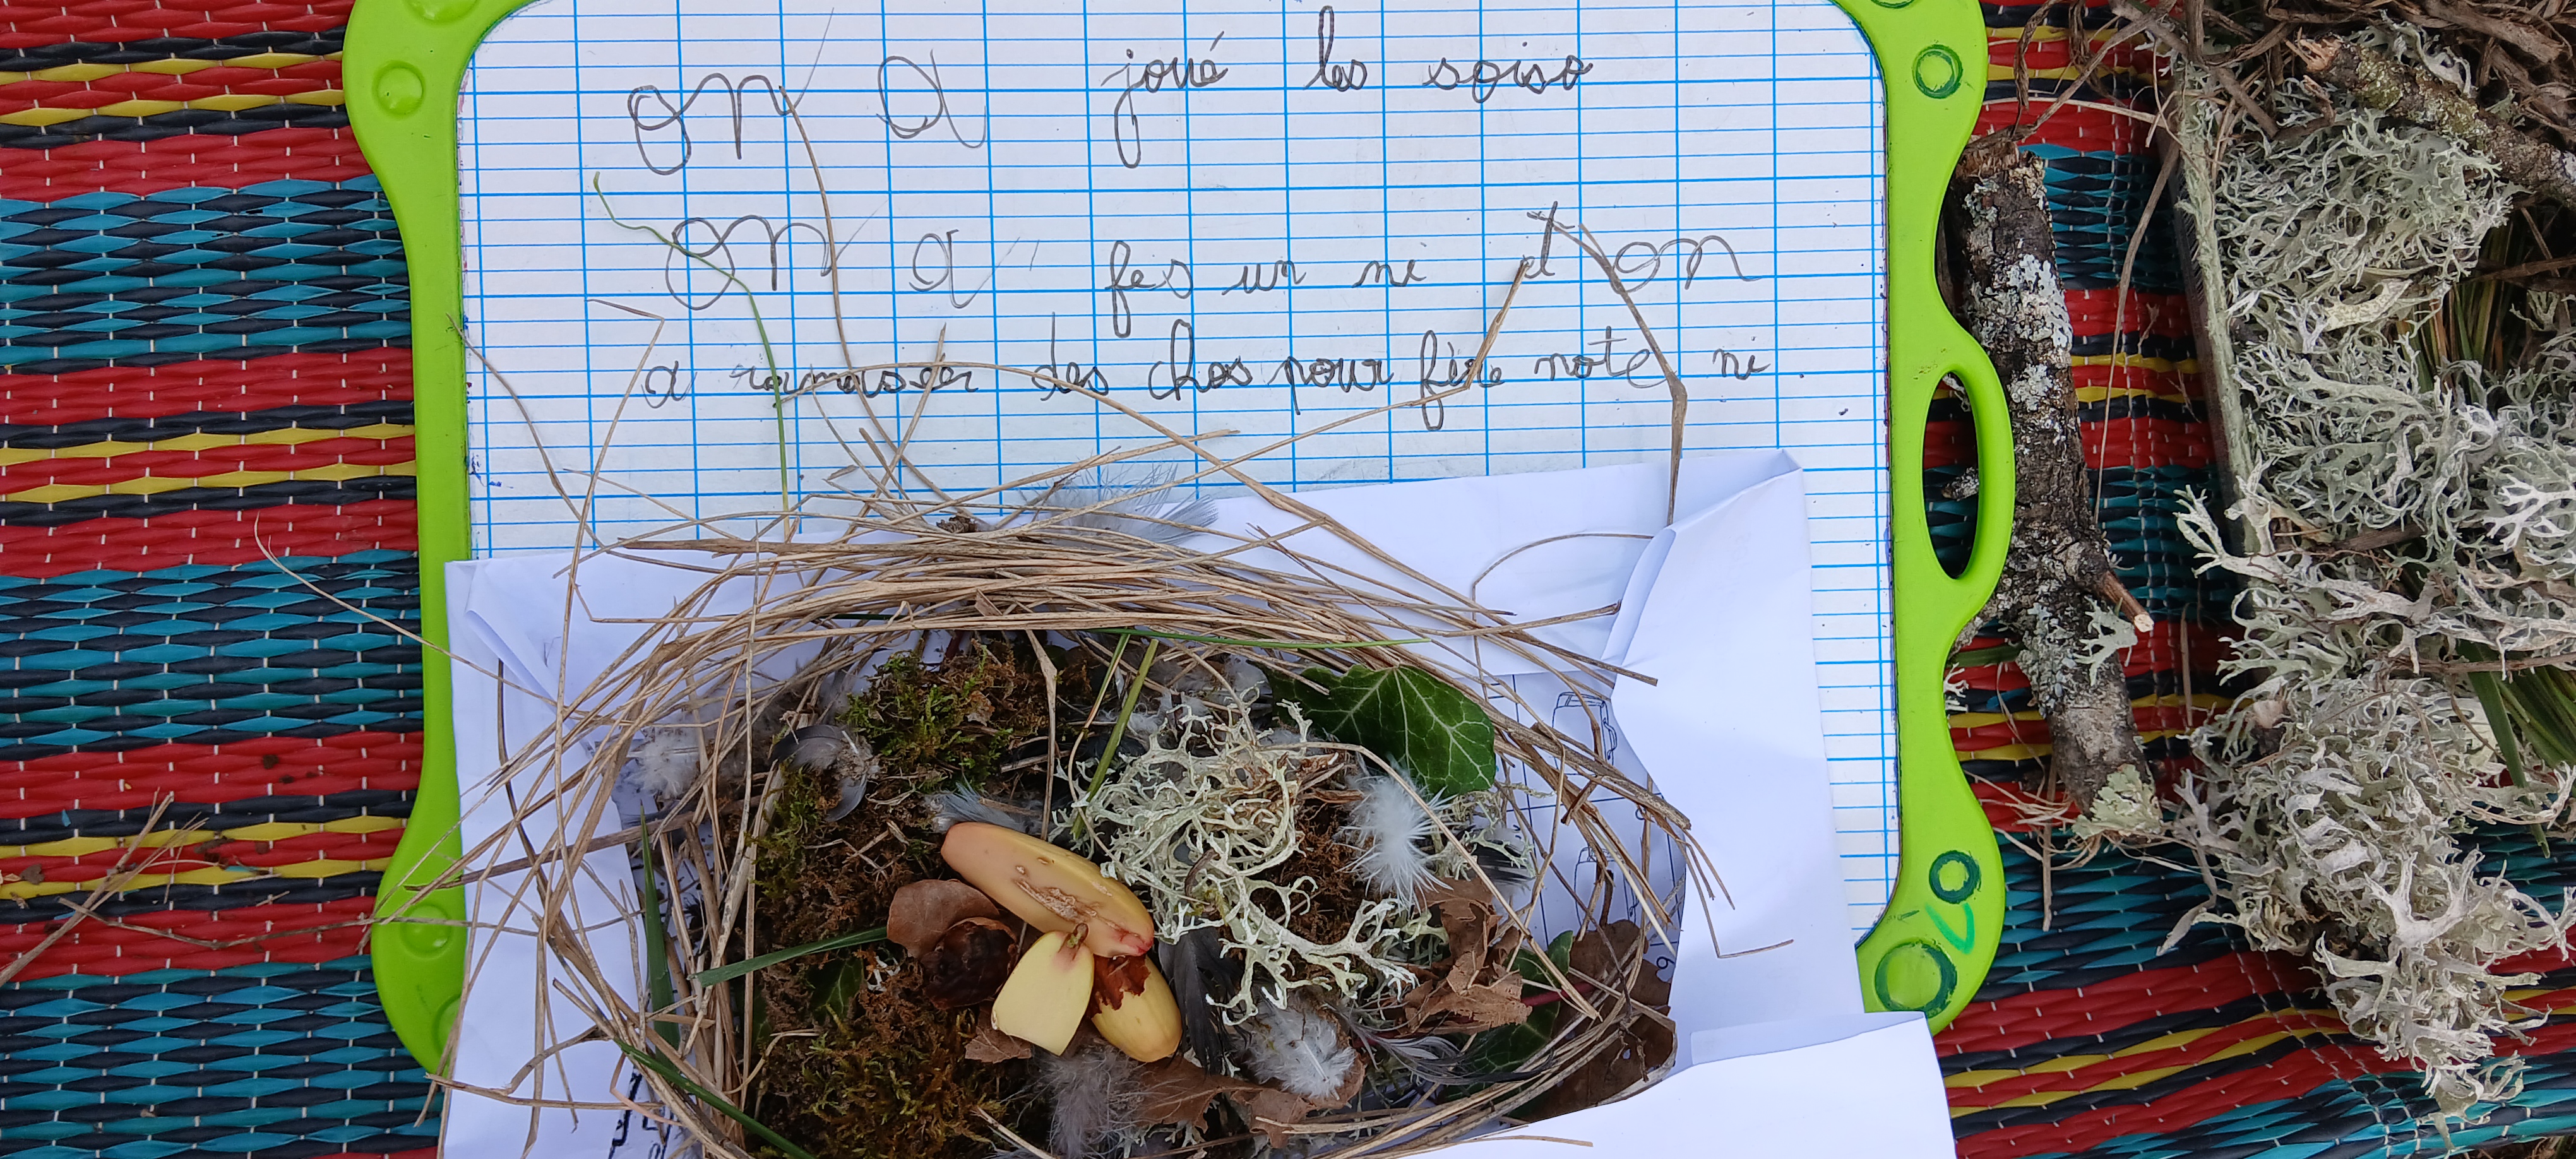 on a joué les soiso
on a fes un ni et on
a ramasser des chos pour fère note ni.